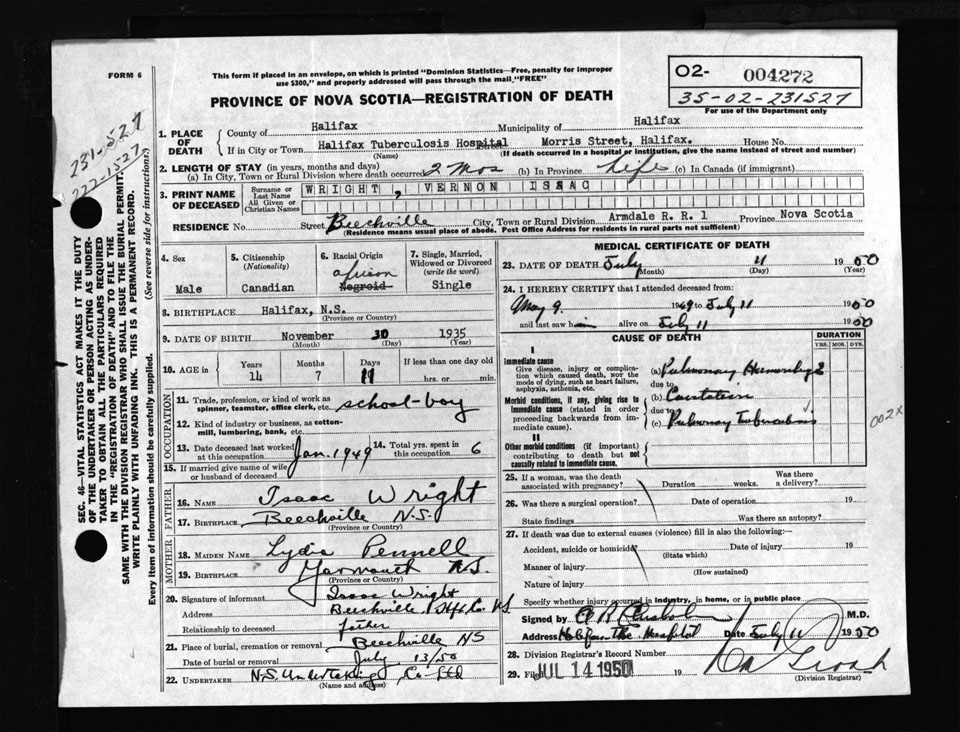 FORM 6
This form if placed in an envelope, on which is printed "Dominion Statistics—Free, penalty for improper
use $300," and properly addressed will pass through the mail "FREE"
PROVINCE OF NOVA SCOTIA—REGISTRATION OF DEATH
O2- 004272
35-02-231527
For use of the Department only
231-527
222-1527
SEC. 46—VITAL STATISTICS ACT MAKES IT THE DUTY
OF THE UNDERTAKER OR PERSON ACTING AS UNDER-
TAKER TO OBTAIN ALL THE PARTICULARS REQUIRED
IN THE "REGISTRATION OF DEATH" AND TO FILE THE
SAME WITH THE DIVISION REGISTRAR WHO SHALL ISSUE THE BURIAL PERMIT.
WRITE PLAINLY WITH UNFADING INK. THIS IS A PERMANENT RECORD.
Every item of information should be carefully supplied. (See reverse side for instructions.)
1. PLACE OF DEATH
County of Halifax Municipality of Halifax
If in City or Town Halifax Tuberculosis Hospital Street Morris Street, Halifax. House No.
(Name) (If death occurred in a hospital or institution, give the name instead of street and number)
2. LENGTH OF STAY (in years, months and days)
(a) In City, Town or Rural Division where death occurred 2 Mos (b) In Province Life (c) In Canada (if immigrant)
3. PRINT NAME OF DECEASED
Surname or Last Name WRIGHT, VERNON ISAAC
All Given or Christian Names
RESIDENCE No. Street Beechville City, Town or Rural Division Armdale R. R. 1 Province Nova Scotia
(Residence means usual place of abode. Post Office Address for residents in rural parts not sufficient)
4. Sex
Male
5. Citizenship (Nationality)
Canadian
6. Racial Origin
African
Negroid
7. Single, Married, Widowed or Divorced (write the word)
Single
8. BIRTHPLACE Halifax, N.S.
(Province or Country)
9. DATE OF BIRTH November 30 1935
(Month) (Day) (Year)
10. AGE in Years Months Days If less than one day old
14 7 11 hrs. or min.
OCCUPATION
11. Trade, profession, or kind of work as
spinner, teamster, office clerk, etc. school-boy
12. Kind of industry or business, as cotton-
mill, lumbering, bank, etc.
13. Date deceased last worked at this occupation Jan. 1949
14. Total yrs. spent in this occupation 6
15. If married give name of wife
or husband of deceased
FATHER
16. NAME Isaac Wright
17. BIRTHPLACE Beechville N.S.
(Province or Country)
MOTHER
18. MAIDEN NAME Lydia Pennell
19. BIRTHPLACE Yarmouth N.S.
(Province or Country)
20. Signature of informant Isaac Wright
Address Beechville Hfx Co. NS
Relationship to deceased father
21. Place of burial, cremation or removal Beechville NS
Date of burial or removal July 13/50
22. UNDERTAKER N.S. Undertaking Co Ltd
(Name and address)
MEDICAL CERTIFICATE OF DEATH
23. DATE OF DEATH July 11 1950
(Month) (Day) (Year)
24. I HEREBY CERTIFY that I attended deceased from:
May 9 1949 to July 11 1950
and last saw him alive on July 11 1950
CAUSE OF DEATH
DURATION
YRS. MOS. DYS.
I
Immediate cause
Give disease, injury or complica-
tion which caused death, not the
mode of dying, such as heart failure,
asphyxia, asthenia, etc.
(a) Pulmonary Hemorrhage
due to
Morbid conditions, if any, giving rise to
immediate cause (stated in order
proceeding backwards from im-
mediate cause).
(b) Cavitation
due to
(c) Pulmonary Tuberculosis
002X
II
Other morbid conditions (if important)
contributing to death but not
causally related to immediate cause.
25. If a woman, was the death
associated with pregnancy? Duration weeks. Was there a delivery?
26. Was there a surgical operation? Date of operation 19
State findings Was there an autopsy?
27. If death was due to external causes (violence) fill in also the following:—
Accident, suicide or homicide? Date of injury 19
(State which)
Manner of injury
(How sustained)
Nature of injury
Specify whether injury occurred in industry, in home, or in public place
Signed by M.D.
Address Date July 11 1950
28. Division Registrar's Record Number
29. Filed JUL 14 1950 19
(Division Registrar)